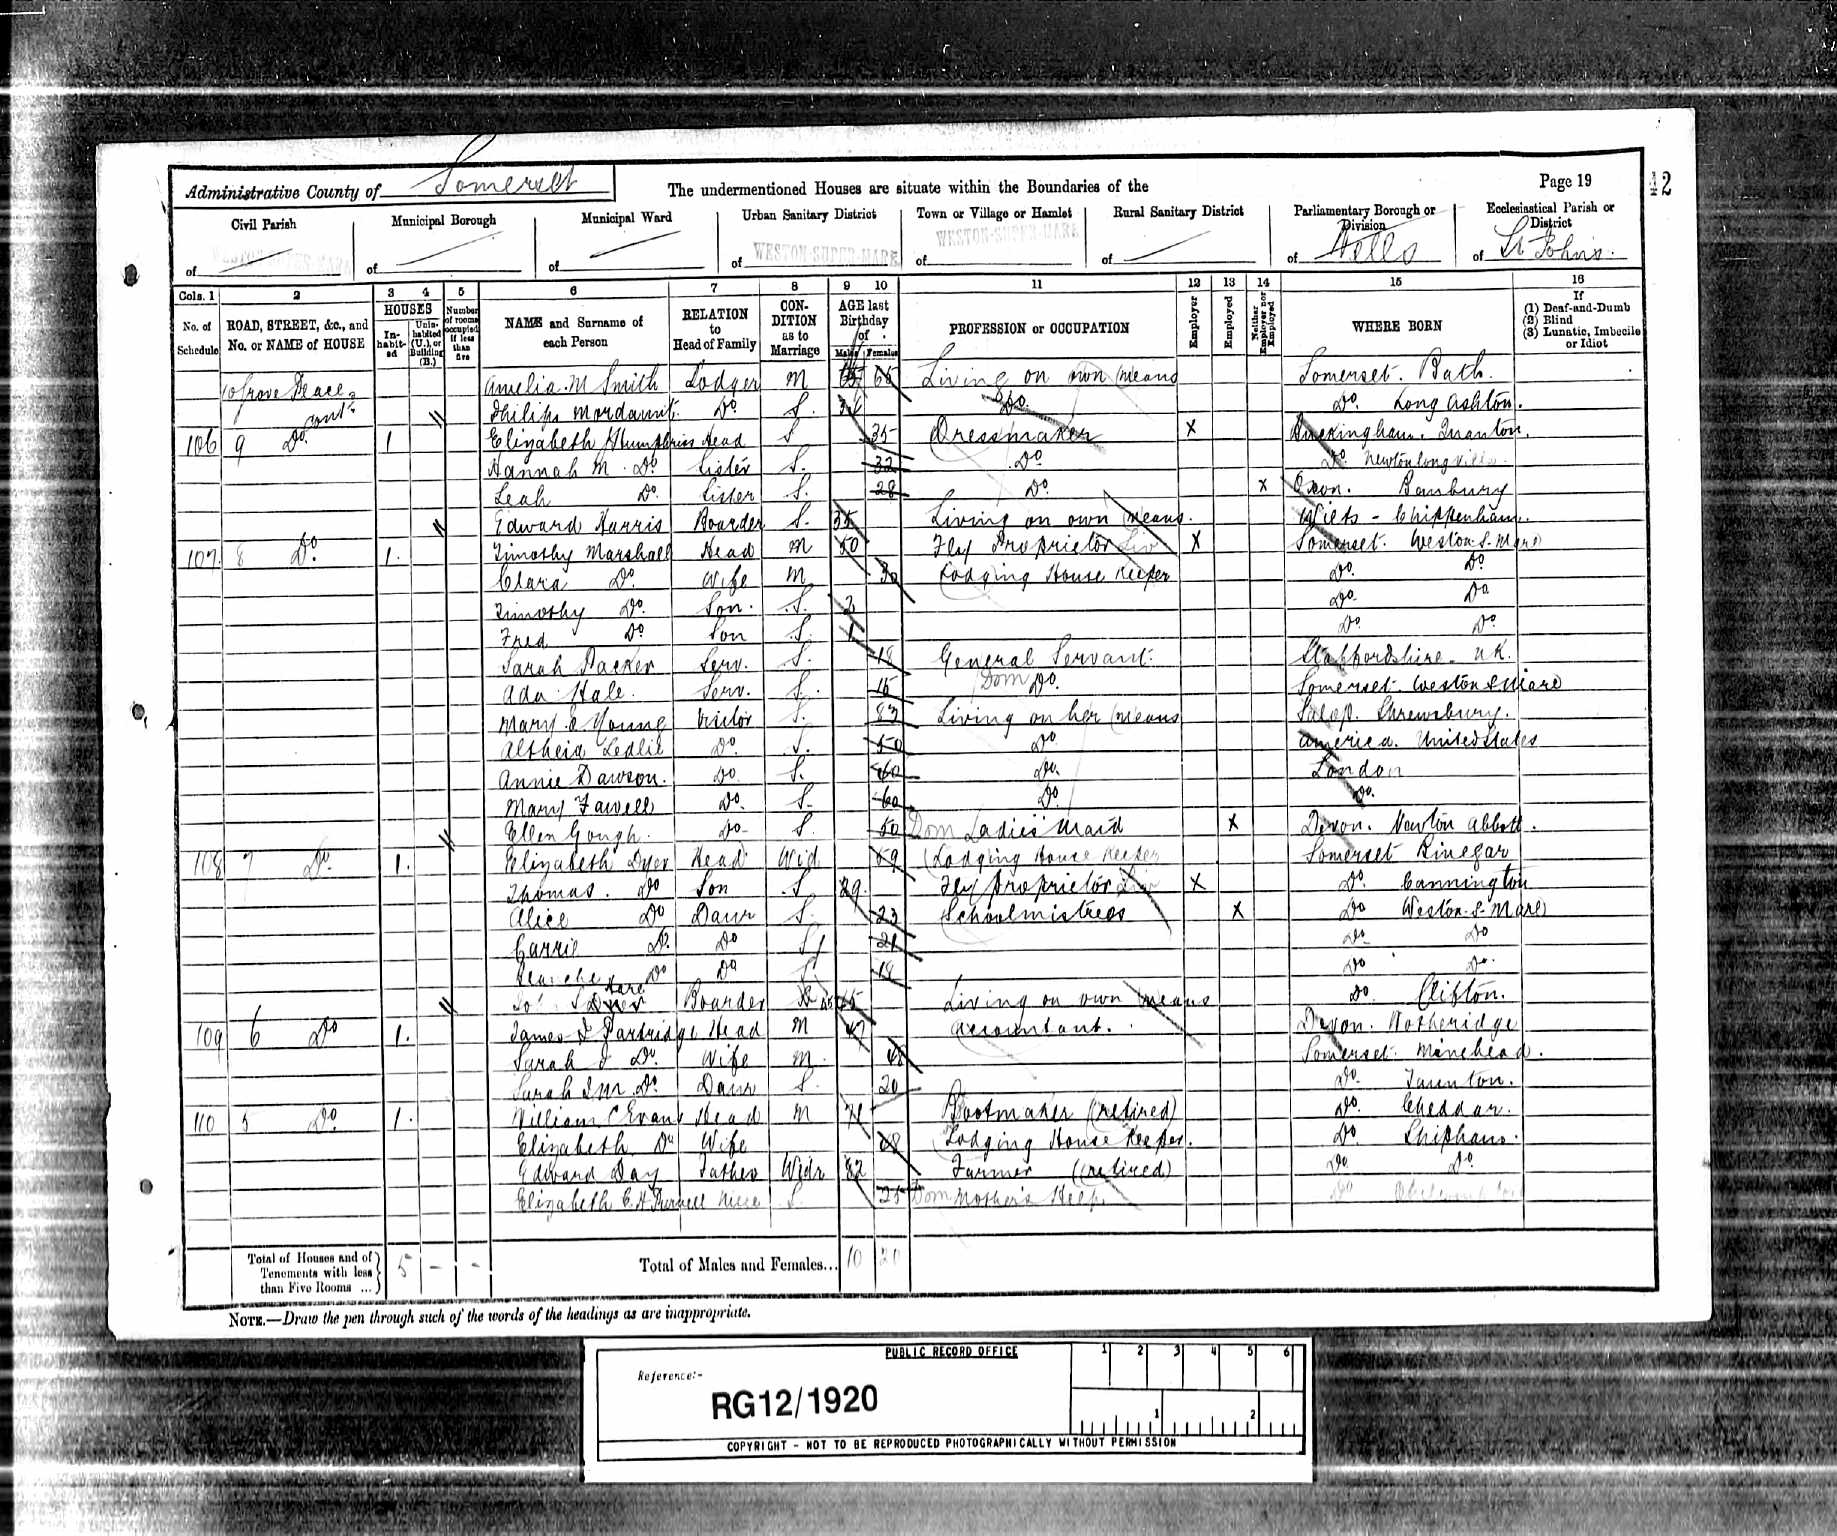 Administrative County of Somerset
The undermentioned Houses are situate within the Boundaries of the
Page 19
42
Civil Parish
Municipal Borough
Municipal Ward
Urban Sanitary District
Town or Village or Hamlet
Rural Sanitary District
Parliamentary Borough or Division
Ecclesiastical Parish or District
of WESTON-SUPER-MARE
of
of
of WESTON-SUPER-MARE
of WESTON-SUPER-MARE
of
of Wells
of St. John's.
Cols. 1 2 3 4 5 6 7 8 9 10 11 12 13 14 15 16
No. of Schedule
ROAD, STREET, &c., and No. or NAME of HOUSE
HOUSES
In-habit-ed
Unin-habited (U.), or Building (B.)
Number of rooms occupied if less than five
NAME and Surname of each Person
RELATION to Head of Family
CON-DITION as to Marriage
AGE last Birthday of
Males Females
PROFESSION or OCCUPATION
Employer
Employed
Neither Employer nor Employed
WHERE BORN
If
(1) Deaf-and-Dumb
(2) Blind
(3) Lunatic, Imbecile or Idiot
10 Grove Place cont. Amelia M Smith Lodger M 65 Living on own means Somerset. Bath.
Philip Mordaunt Do. S. Do. Do. Long Ashton.
106 9 Do. 1 Elizabeth Humphriss Head S 35 Dressmaker X Buckingham. Quanton.
Hannah M. Do Sister S. 32 Do Do. Newton long
Leah Do. Sister S. 28 Do. X Oxon. Banbury
Edward Harris Boarder S. 35 Living on own means. Wilts - Chippenham.
107. 8 Do 1. Timothy Marshall Head M 50 Fly Proprietor X Somerset. Weston-S-Mare
Clara Do. Wife M 30 Lodging House Keeper Do. Do.
Timothy Do. Son. S. 2 Do. Do
Fred Do Son S. 1 Do. Do.
Sarah Packer Serv. S. 18 General Servant. Staffordshire. N.K.
Ada Hale. Serv. S. 15 Dom Do. Somerset. Weston S Mare
Mary E Young Visitor S. 83 Living on her means Salop. Shrewsbury.
Altheia Ledlie Do. S. 50 Do America. United States
Annie Dawson. Do S. 60 Do. London
Mary Fawell Do. S 60 Do. Do.
Ellen Gough. Do S 50 Dom Ladies Maid X Devon. Newton Abbott.
108 7 Do. 1. Elizabeth Dyer Head Wid 59 Lodging House Keeper Somerset Binegar
Thomas. Do Son S 29. Fly proprietor X Do. Cannington
Alice Do Daur S. 23 Schoolmistress X Do Weston-S-Mare
Carrie Do. Do S 21 Do Do
Blanche Do Do S 18 Do Do.
Boarder 65 Living on own means Do. Clifton.
109 6 Do 1. James Partridge Head M 47 Accountant. Devon.
Sarah J Do. Wife M. 48 Somerset. Minehead.
Sarah Do. Daur S. 20 Do. Taunton.
110 5 Do. 1. William C Evans Head M 71 Bootmaker (retired) Do. Cheddar.
Elizabeth Do Wife 68 Lodging House Keeper. Do. Shipham.
Edward Day Father Widr 82 Farmer (retired) Do Do.
Elizabeth E. H. Niece S 25 Dom Mother's Help. Do
Total of Houses and of Tenements with less than Five Rooms ...
5 - -
Total of Males and Females...
10 20
NOTE.—Draw the pen through such of the words of the headings as are inappropriate.
PUBLIC RECORD OFFICE
1 2 3 4 5 6
Reference:-
RG12/1920
1 2
COPYRIGHT - NOT TO BE REPRODUCED PHOTOGRAPHICALLY WITHOUT PERMISSION